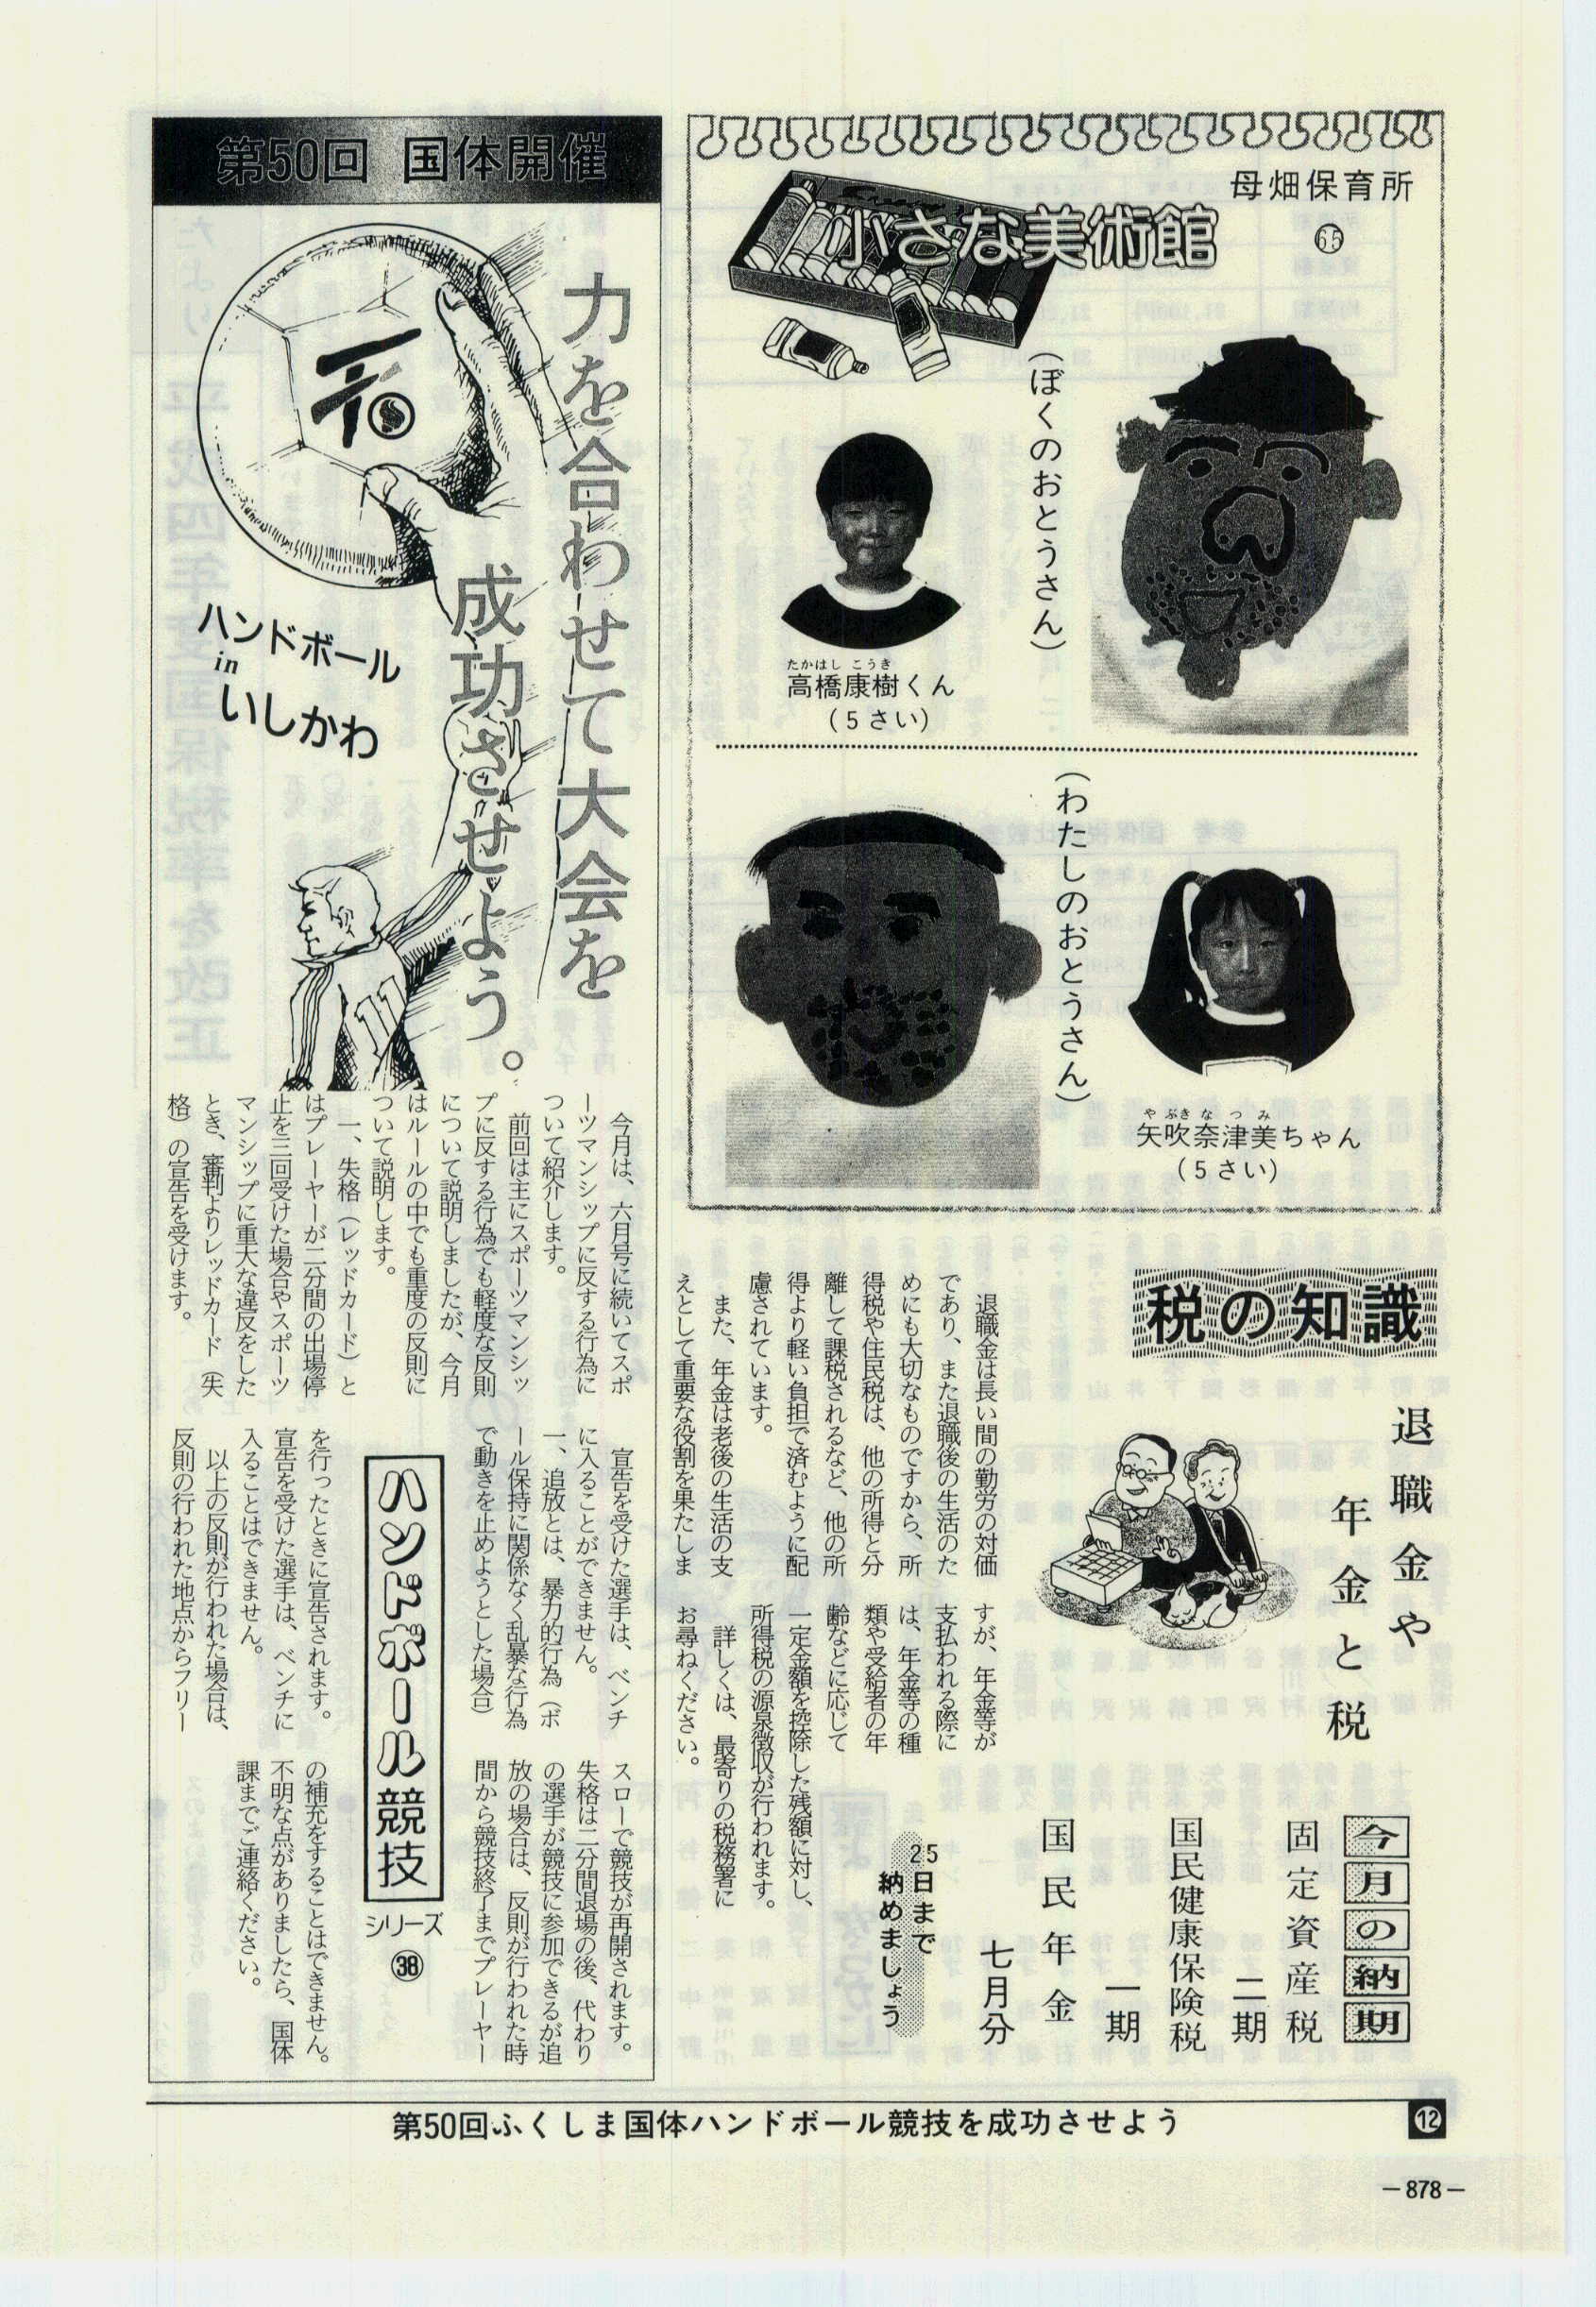 母畑保育所
65
小さな美術館
(ぼくのおとうさん)
たかはし こうき
高橋康樹くん
(5さい)
(わたしのおとうさん)
やぶき な つ み
矢吹奈津美ちゃん
(5さい)
税の知識
退職金や
年金と税
退職金は長い間の勤労の対価
であり、また退職後の生活のた
めにも大切なものですから、所
得税や住民税は、他の所得と分
離して課税されるなど、他の所
得より軽い負担で済むように配
慮されています。
また、年金は老後の生活の支
えとして重要な役割を果たしま
すが、年金等が
支払われる際に
は、年金等の種
類や受給者の年
齢などに応じて
一定金額を控除した残額に対し、
所得税の源泉徴収が行われます。
詳しくは、最寄りの税務署に
お尋ねください。
今月の納期
固定資産税
二期
国民健康保険税
一期
国民年金
七月分
25日まで
納めましょう
第50回 国体開催
力を合わせて大会を
成功させよう。
ハンドボール
in
いしかわ
11
今月は、六月号に続いてスポ
ーツマンシップに反する行為に
ついて紹介します。
前回は主にスポーツマンシッ
プに反する行為でも軽度な反則
について説明しましたが、今月
はルールの中でも重度の反則に
ついて説明します。
一、失格(レッドカード)と
はプレーヤーが二分間の出場停
止を三回受けた場合やスポーツ
マンシップに重大な違反をした
とき、審判よりレッドカード(失
格)の宣告を受けます。
宣告を受けた選手は、ベンチ
に入ることができません。
一、追放とは、暴力的行為(ボ
ール保持に関係なく乱暴な行為
で動きを止めようとした場合)
を行ったときに宣告されます。
宣告を受けた選手は、ベンチに
入ることはできません。
以上の反則が行われた場合は、
反則の行われた地点からフリー
スローで競技が再開されます。
失格は二分間退場の後、代わり
の選手が競技に参加できるが追
放の場合は、反則が行われた時
間から競技終了までプレーヤー
の補充をすることはできません。
不明な点がありましたら、国体
課までご連絡ください。
ハンドボール競技
シリーズ
38
第50回ふくしま国体ハンドボール競技を成功させよう
12
—878—